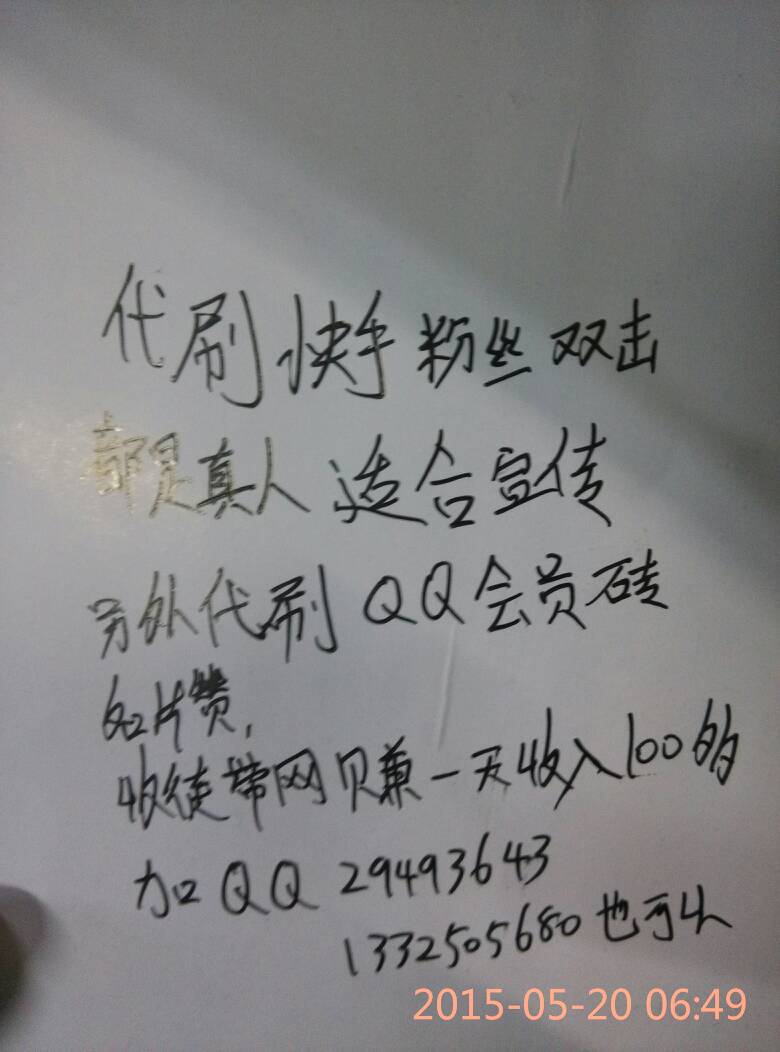 代刷快手粉丝双击
都是真人适合宣传
另外代刷QQ会员砖
名片赞,
收徒带网贝兼一天收入100的
加QQ 29493643
1332505680也可以
2015-05-20 06:49